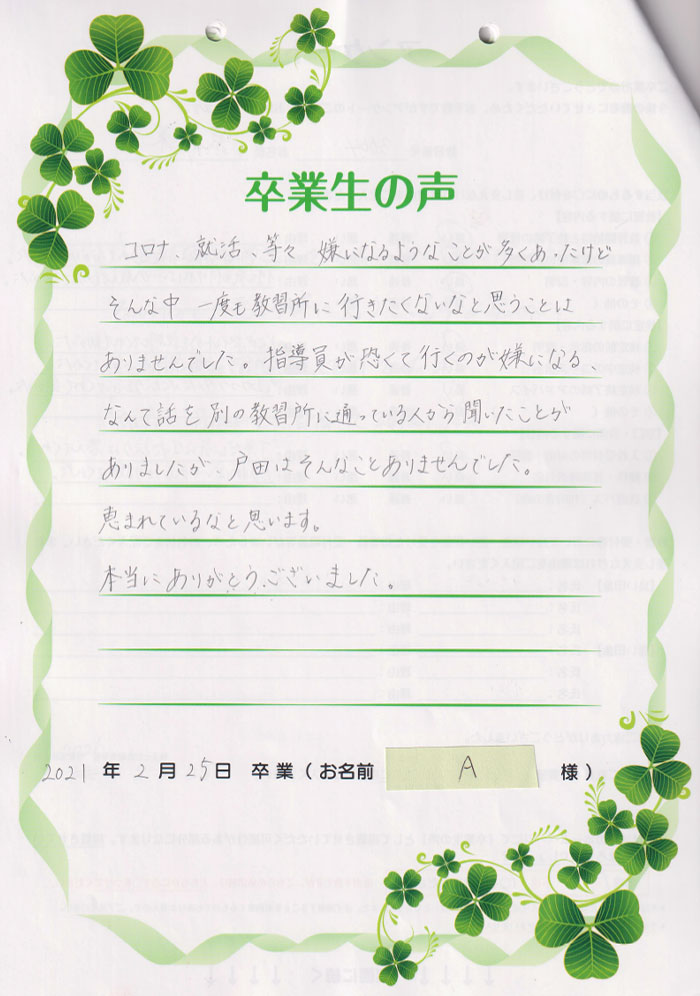 卒業生の声
コロナ、就活、等々 嫌になるようなことが多くあったけど
そんな中 一度も教習所に行きたくないなと思うことは
ありませんでした。指導員が恐くて行くのが嫌になる、
なんて話を別の教習所に通っている人から聞いたことが
ありましたが、戸田はそんなことありませんでした。
恵まれているなと思います。
本当にありがとうございました。
2021年2月25日 卒業(お名前 A 様)